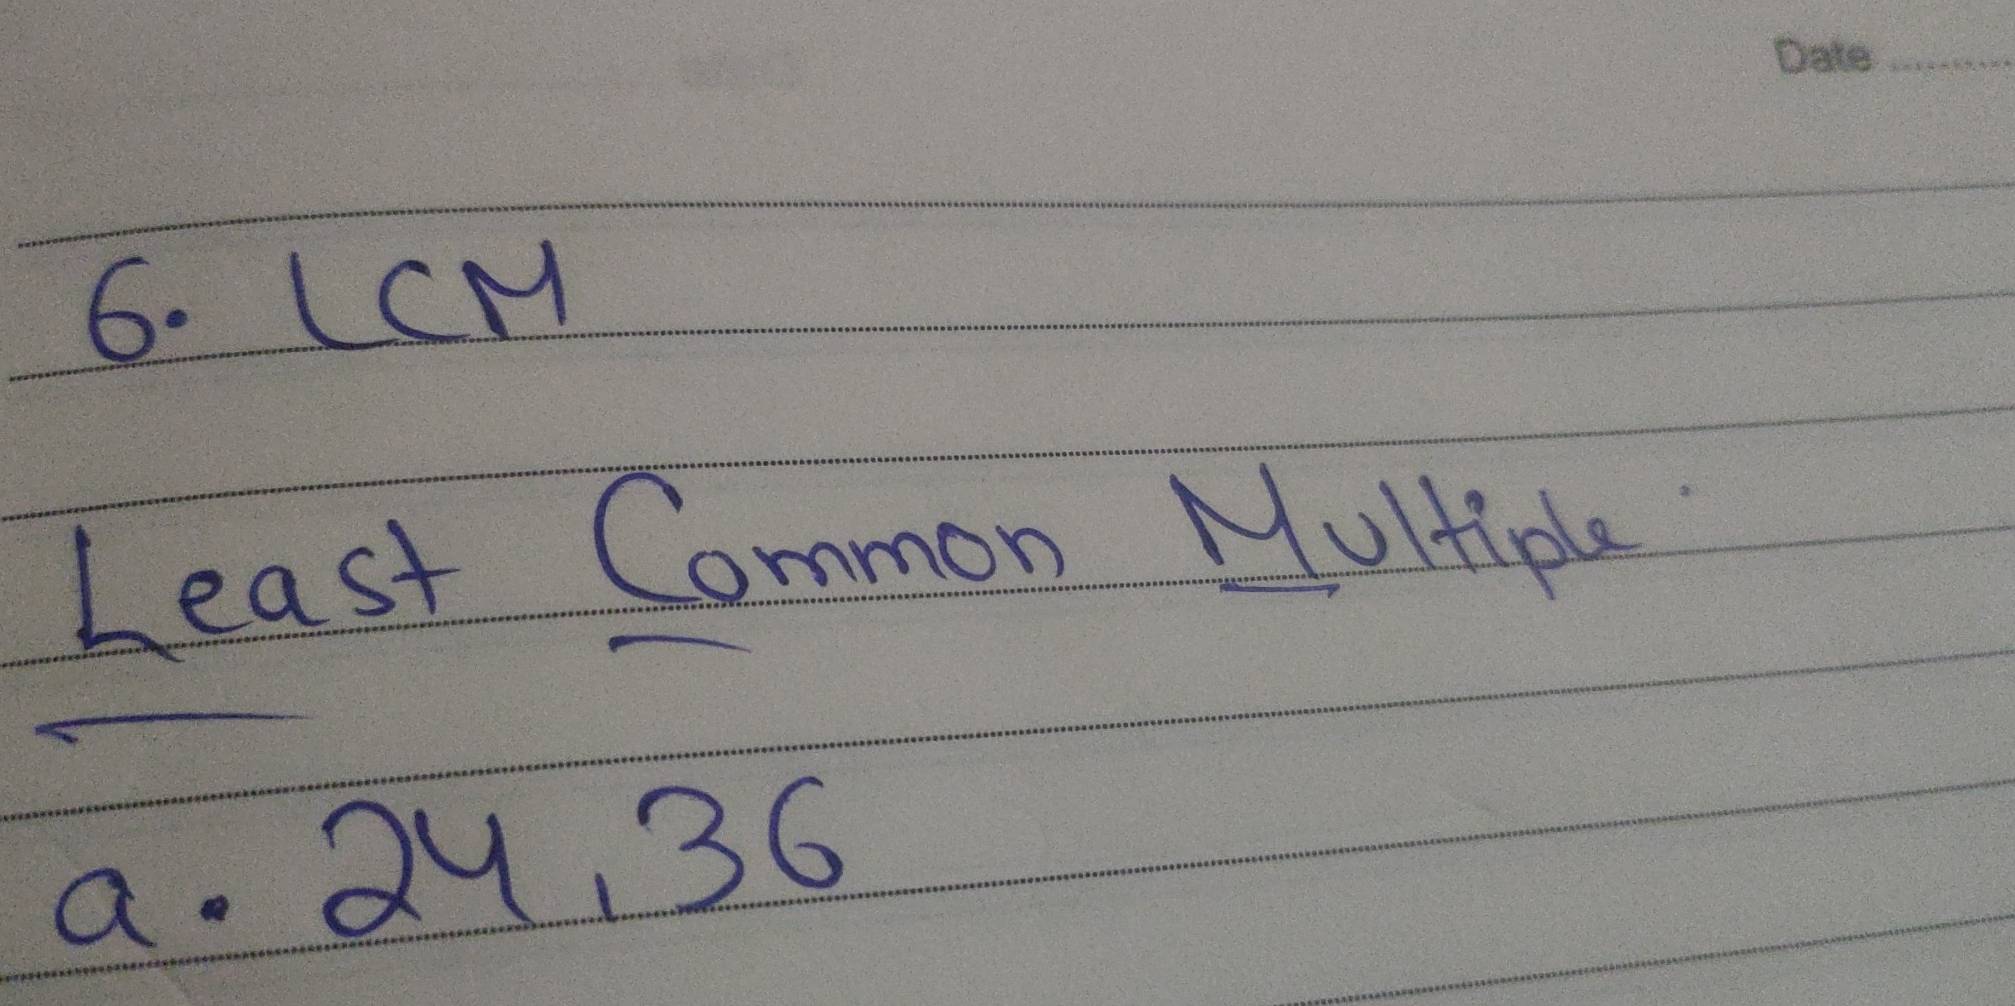 Date ..........
6. LCM
Least Common Multiple.
a. 24, 36